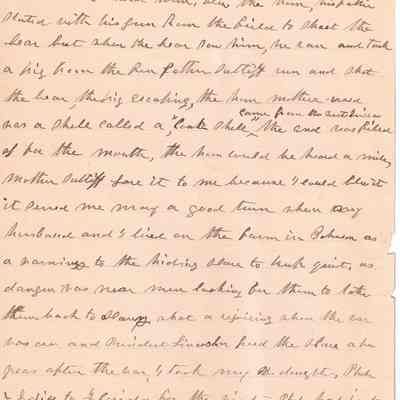 started with his gun from the field to shoot the
bear but when the bear saw him, he ran and took
a pig from the pen father Sutliff run and shot
the bear, the pig escaping, the horn mother used
came from the west indies
was a shell called a "Conk shell", the end was filed
of for the mouth, the horn could be heard a mile,
mother Sutliff gave it to me because I could blow it
it served me many a good turn when my
husband and I lived on the farm in Johnson as
a warning to the hiding slave to keep quiet, as
danger was near men looking for them to take
them back to slavery what a rejoicing when the war
was over and President Lincoln freed the slave a few
years after the war, I took my daughter, Phebe